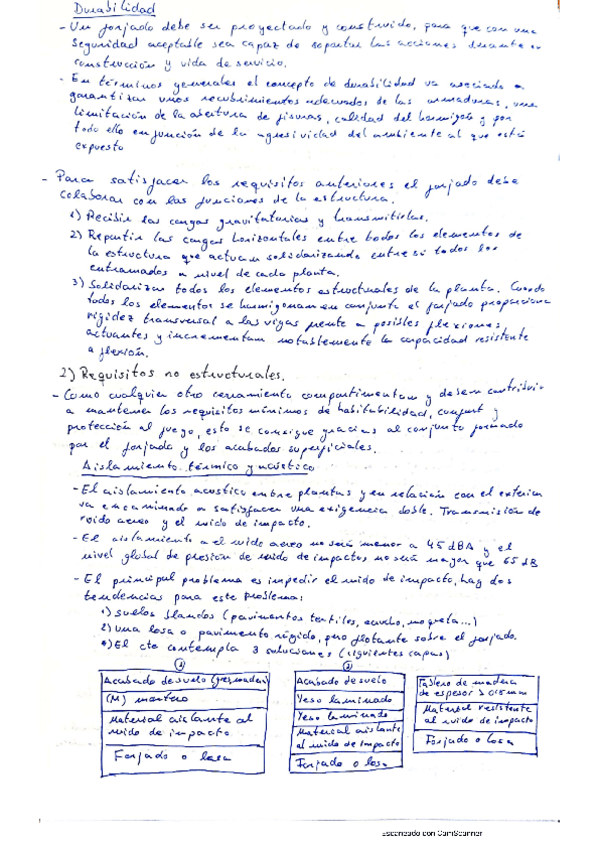 Durabilidad
- Un forjado debe ser proyectado y construido, para que con una
seguridad aceptable sea capaz de soportar las acciones durante su
construcción y vida de servicio.
- En términos generales el concepto de durabilidad va asociado a
garantizar unos recubrimientos adecuados de las armaduras, una
limitación de la abertura de fisuras, calidad del hormigón y por
todo ello en función de la agresividad del ambiente al que está
expuesto
- Para satisfacer los requisitos anteriores el forjado debe
colaborar con las funciones de la estructura.
1) Recibir las cargas gravitatorias y transmitirlas.
2) Repartir las cargas horizontales entre todos los elementos de
la estructura que actuan solidarizando entre si todos los
entramados a nivel de cada planta.
3) Solidarizar todos los elementos estructurales de la planta. Cuando
todos los elementos se hormigonan en conjunto el forjado proporciona
rigidez transversal a las vigas frente a posibles flexiones
actuantes y incrementan notablemente la capacidad resistente
a flexión.
2) Requisitos no estructurales.
- Como cualquier otro cerramiento compartimentan y deben contribuir
a mantener los requisitos mínimos de habitabilidad, confort y
protección al fuego, esto se consigue gracias al conjunto formado
por el forjado y los acabados superficiales.
Aislamiento térmico y acústico
- El aislamiento acustico entre plantas y en relación con el exterior
va encaminado a satisfacer una exigencia doble. Transmisión de
ruido aereo y el ruido de impacto.
- El aislamiento a el ruido aereo no será menor a 45 dBA y el
nivel global de presión de ruido de impactos no será mayor que 65 dB
- El principal problema es impedir el ruido de impacto, hay dos
tendencias para este problema:
1) suelos blandos (pavimentos textiles, caucho, moqueta...)
2) una losa o pavimento rígido, pero flotante sobre el forjado.
*) El cte contempla 3 soluciones (siguientes capas)
Acabado de suelo
(M) mortero
Material aislante al
ruido de impacto
Forjado o losa
Acabado de suelo
Yeso laminado
Yeso laminado
Material aislante
al ruido de impacto
Forjado o losa
Tablero de madera
de espesor
Material resistente
al ruido de impacto
Forjado o losa
Escaneado con CamScanner